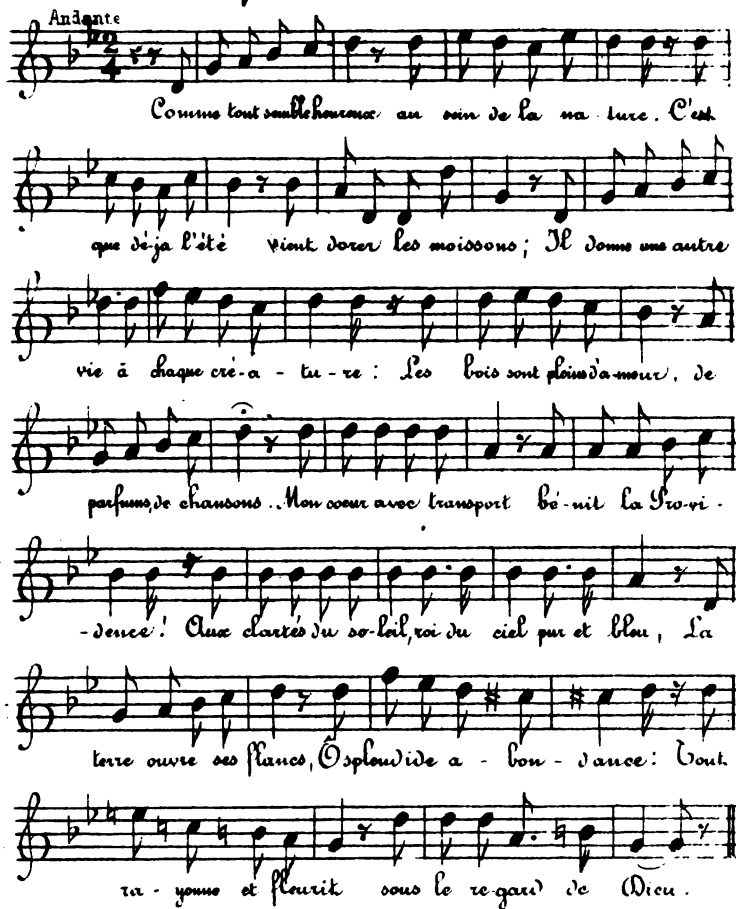 Andante
2
4
Comme tout semble heureux au sein de la na - ture. C'est
que dé-ja l'été vient dorer les moissons; Il donne une autre
vie à chaque cré-a - tu - re: Les bois sont pleins d'a-mour, de
parfums, de chansons. Mon coeur avec transport bé-nit la Pro-vi-
-dence! Aux clartés du so-leil, roi du ciel pur et bleu, La
terre ouvre ses flancs, Ô splendide a - bon - dance: Tout
ra - yonne et fleurit sous le re-gard de Dieu.